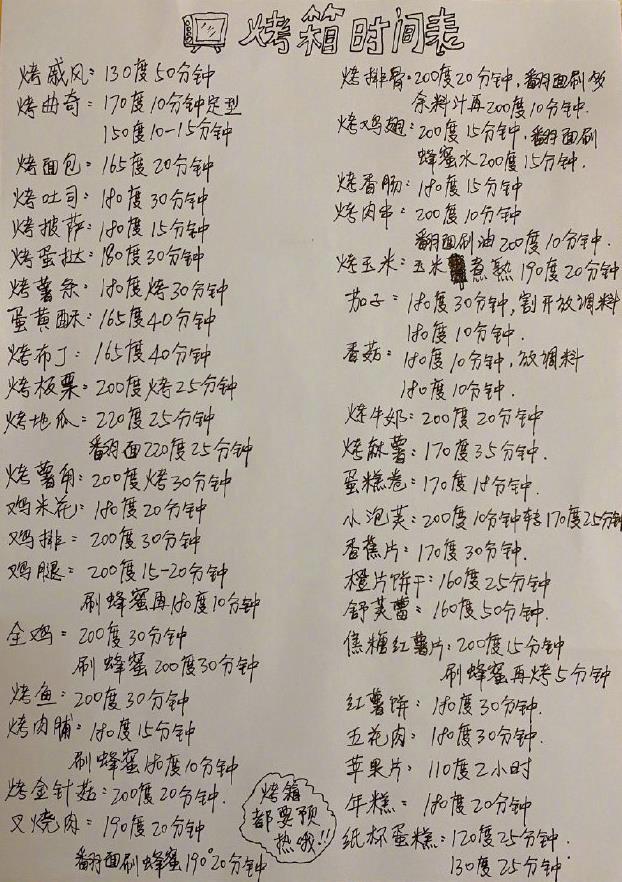 烤箱时间表
烤戚风：130度50分钟
烤曲奇：170度10分钟定型
150度10-15分钟
烤面包：165度20分钟
烤吐司：180度30分钟
烤披萨：180度15分钟
烤蛋挞：180度30分钟
烤薯条：180度烤30分钟
蛋黄酥：165度40分钟
烤布丁：165度40分钟
烤板栗：200度烤25分钟
烤地瓜：220度25分钟
翻面220度25分钟
烤薯角：200度烤30分钟
鸡米花：180度20分钟
鸡排：200度30分钟
鸡腿：200度15-20分钟
刷蜂蜜再180度10分钟
全鸡：200度30分钟
刷蜂蜜200度30分钟
烤鱼：200度30分钟
烤肉脯：180度15分钟
刷蜂蜜180度10分钟
烤金针菇：200度20分钟.
叉烧肉：190度20分钟
翻面刷蜂蜜190°20分钟
烤箱
都要预
热哦!!
烤排骨：200度20分钟，翻面刷多
余料汁再200度10分钟.
烤鸡翅：200度15分钟，翻面刷
蜂蜜水200度15分钟.
烤香肠：180度15分钟
烤肉串：200度10分钟
翻面刷油200度10分钟.
烤玉米：玉米煮熟190度20分钟
茄子：180度30分钟，割开放调料
180度10分钟.
香菇：180度10分钟，放调料
180度10分钟.
烤牛奶：200度20分钟
烤麻薯：170度35分钟.
蛋糕卷：170度18分钟.
小泡芙：200度10分钟转170度25分钟
香蕉片：170度30分钟.
橙片饼干：160度25分钟
舒芙蕾：160度50分钟.
焦糖红薯片：200度15分钟
刷蜂蜜再烤5分钟
红薯饼：180度30分钟.
五花肉：180度30分钟.
苹果片：110度2小时
年糕：180度20分钟
纸杯蛋糕：120度25分钟.
130度25分钟.